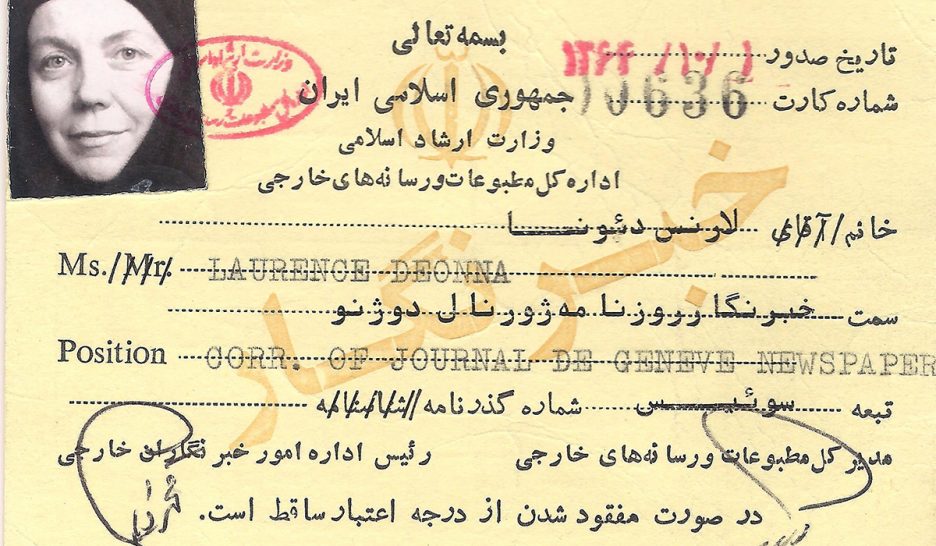 بسمه تعالی
تاریخ صدور ۱۳۶۴/۱۰/۱
جمهوری اسلامی ایران
شماره کارت 10636
وزارت ارشاد اسلامی
اداره کل مطبوعات و رسانه‌های خارجی
خبرنگار
خانم/آقای لارنس دئونا
Ms./Mr. LAURENCE DEONNA
سمت خبرنگار روزنامه ژورنال دوژنو
Position CORR. OF JOURNAL DE GENEVE NEWSPAPER
تبعه سوئیس شماره گذرنامه/شناسنامه
مدیر کل مطبوعات و رسانه‌های خارجی
رئیس اداره امور خبرنگاران خارجی
در صورت مفقود شدن از درجه اعتبار ساقط است.